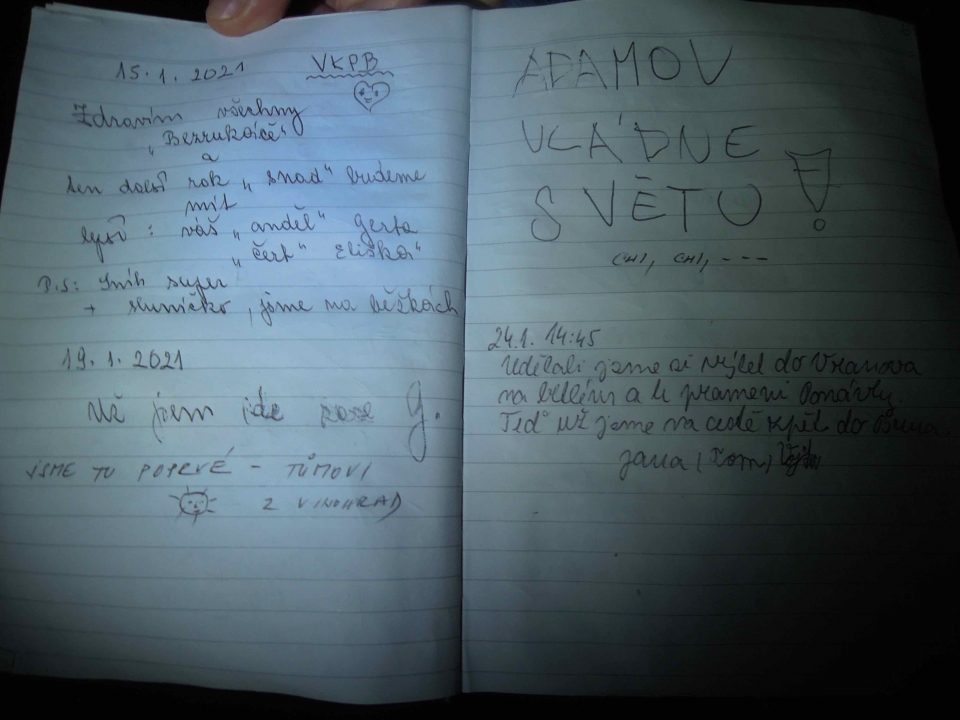 15.1.2021 VKPB
Zdravím všechny
„Bezrukáčě"
a
ten další rok „snad" budeme
mít
lepší : váš „anděl" Gerta
„čert" Eliška"
P.S: Sníh super
+ sluníčko, jsme na běžkách
19.1.2021
Už jsem zde zase G.
JSME TU POPRVÉ - TŮMOVI
Z VINOHRAD
ADAMOV
VLÁDNE
SVĚTU !
CHI, CHI, ---
24.1. 14:45
Udělali jsme si výlet do Vranova
na betlém a k prameni Ponávky.
Teď už jsme na cestě zpět do Brna.
Jana, Tom,